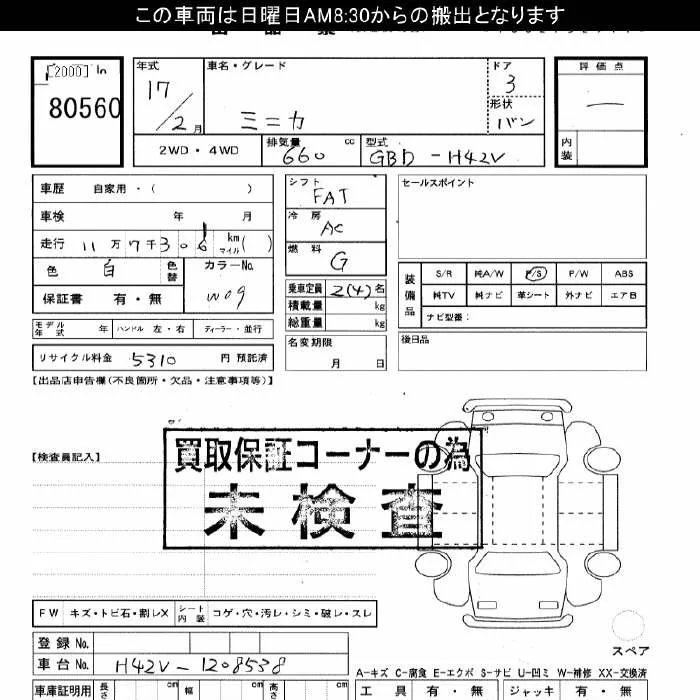 この車両は日曜日AM8:30からの搬出となります
[2000] In
80560
年式
17/2月
車名・グレード
ミニカ
ドア
3
形状
バン
評価点
—
内装
2WD・4WD
排気量 660 cc
型式 GBD-H42V
車歴 自家用・( )
車検 年 月
走行 11万7千306 km マイル( )
色 白 色替
カラーNo. W09
保証書 有・無
シフト FAT
冷房 AC
燃料 G
乗車定員 2(4)名
積載量 kg
総重量 kg
名変期限 月 日
セールスポイント
装備品
S/R 純A/W P/S P/W ABS
純TV 純ナビ 革シート 外ナビ エアB
ナビ型番:
後日品
モデル年式 年 ハンドル 左・右 ディーラー・並行
リサイクル料金 5310 円 預託済
【出品店申告欄(不良箇所・欠品・注意事項等)】
【検査員記入】
買取保証コーナーの為
未検査
FW キズ・トビ石・割レX シート内装 コゲ・穴・汚レ・シミ・破レ・スレ
登録No.
車台No. H42V-1208538
スペア
A-キズ C-腐食 E-エクボ S-サビ U-凹ミ W-補修 XX-交換済
車庫証明用 長さ cm 幅 cm 高さ cm
工具 有・無 ジャッキ 有・無